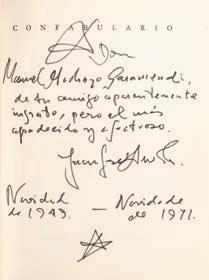 CONFABULARIO
A Don
Manuel Medrazo Garamendi,
de su amigo aparentemente
ingrato, pero el más
agradecido y afectuoso.
Juan José Arreola
Navidad — Navidad de
de 1949. de 1971.